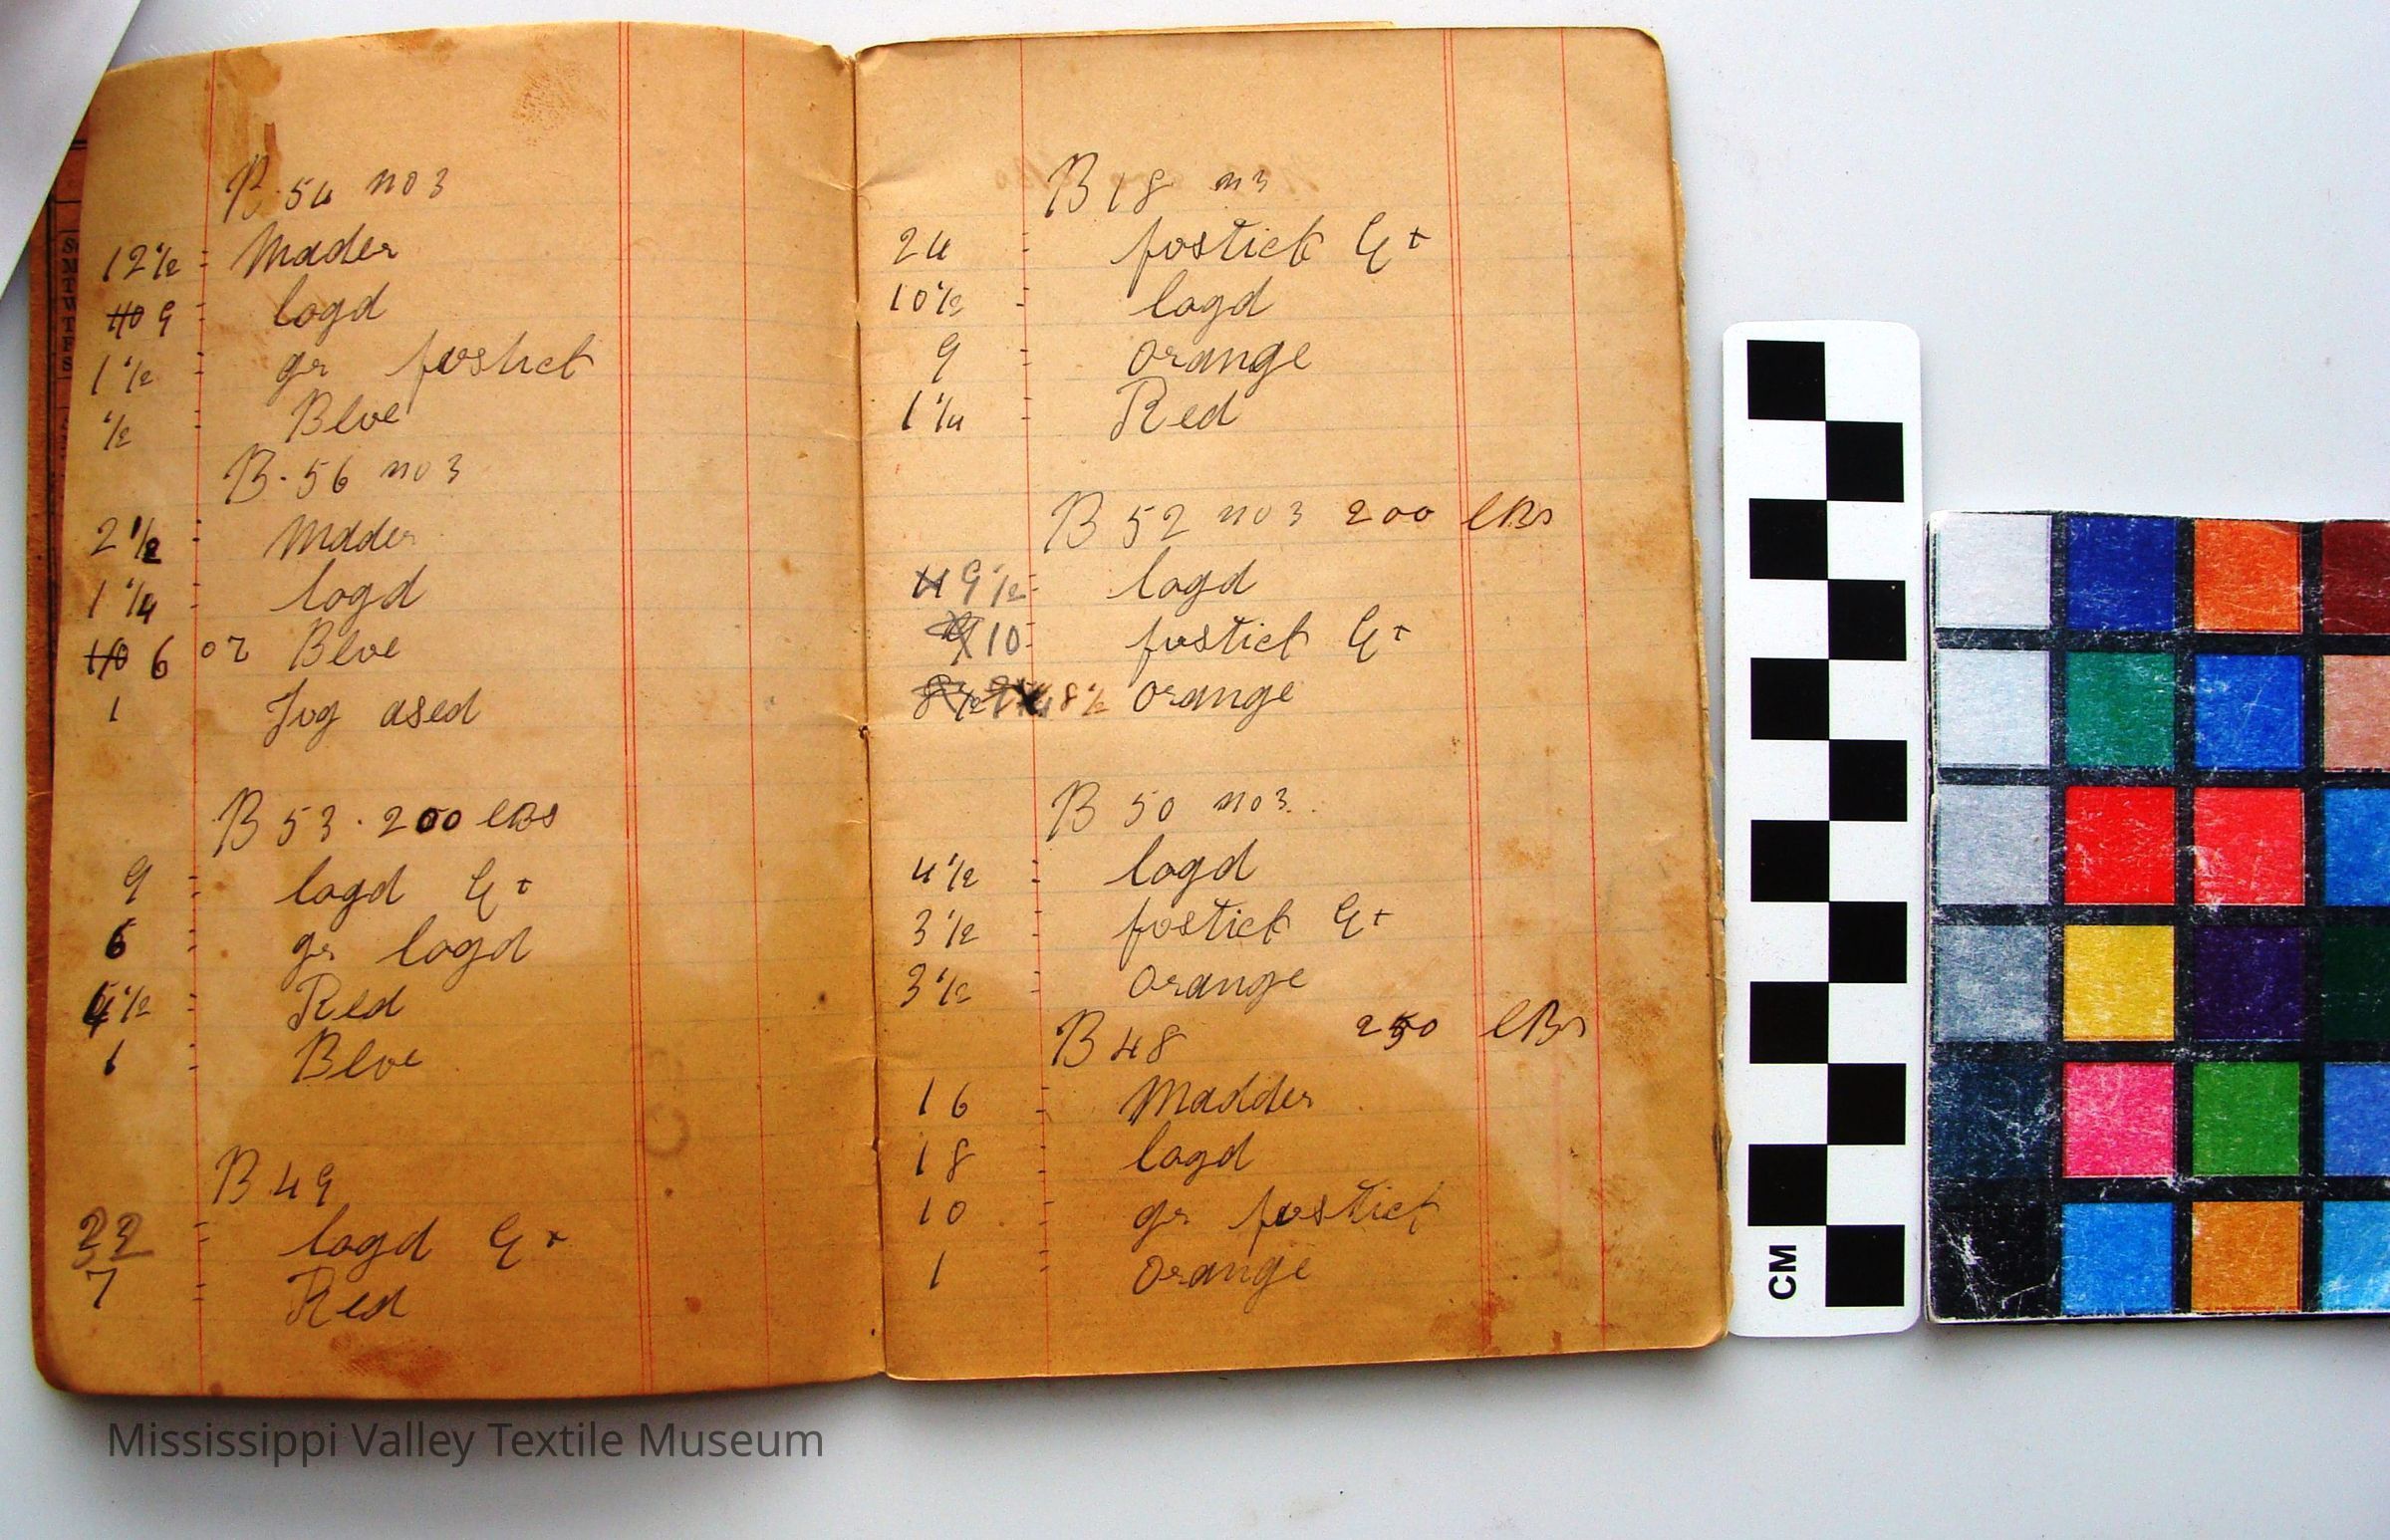 B. 54 no 3
12 1/2 = Mader
10 9 = logd
1 1/2 = gr fostict
1/2 - Blve
B. 56 no 3
2 1/2 = Mader
1 1/4 = logd
10 6 oz Blve
1 Jvg ased
B 53. 200 lBs
9 = logd Ex
6 = gr logd
1/2 = Red
1 = Blve
B 49
= logd Ex
7 = Red
B 18 n 3
24 = fostick Ex
10 1/2 = logd
9 = orange
1 1/4 = Red
B 52 no 3 200 lBs
9 1/2 = logd
10 - fostict Ex
8 1/2 orange
B 50 no 3.
4 1/2 = logd
3 1/2 = fostict Ex
3 1/2 = orange
B 48 250 lBs
16 = Madder
18 = logd
10 = gr fostict
1 = orange
CM
Mississippi Valley Textile Museum